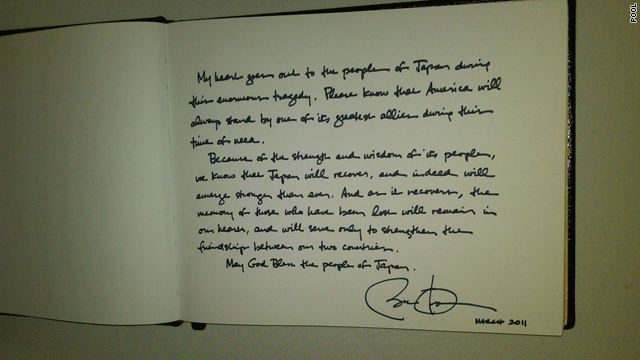 My heart goes out to the people of Japan during
this enormous tragedy. Please know that America will
always stand by one of its greatest allies during this
time of need.
Because of the strength and wisdom of its people,
we know that Japan will recover, and indeed will
emerge stronger than ever. And as it recovers, the
memory of those who have been lost will remain in
our hearts, and will serve only to strengthen the
friendship between our two countries.
May God Bless the people of Japan.
MARCH 2011
POOL